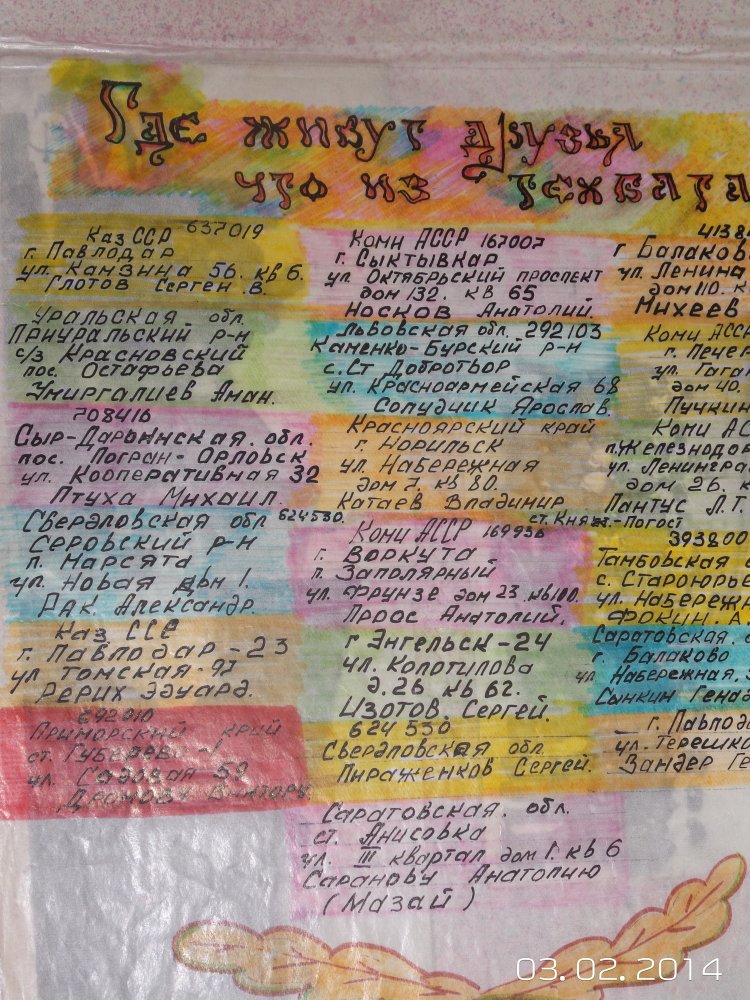 Где живут друзья
что из техвзвода
КазССР 637019
г. Павлодар
ул. Камзина 56. кв 6.
Глотов Сергей В.
Уральская обл.
Приуральский р-н
с/з Красновский
пос. Остафьева
Умиргалиев Аман.
708416
Сыр-Дарьинская. обл.
пос. Погран-Орловск
ул. Кооперативная 32
Птуха Михаил.
Свердловская обл 624530.
Серовский р-н
п. Марсята
ул. Новая дом 1.
Рак. Александр.
Каз ССР
г. Павлодар-23
ул Томская-97
Рерих Эдуард.
692010
Приморский край
ст. Губерево-1
ул. Садовая 59
Дромову Виктору
Коми АССР 167007
г. Сыктывкар
ул. Октябрьский проспект
дом 132. кв 65
Носков Анатолий.
Львовская обл. 292103
Каменко-Бурский р-н
с. Ст Добротвор
ул. Красноармейская 68
Солудчик Ярослав.
Красноярский край
г. Норильск
ул Набережная
дом 7. кв 80.
Катаев Владимир
Коми АССР 169936
г. Воркута
п. Заполярный
ул. Фрунзе дом 23 кв 100.
Проос Анатолий.
г Энгельск-24
ул. Колотилова
д. 26 кв 62.
Изотов. Сергей.
624530
Свердловская обл.
Пираженков Сергей.
Саратовская. обл.
ст. Анисовка
ул. III квартал дом 1. кв 6
Саранову Анатолию
(Мазай)
4138
г Балаково
ул. Ленина
дом 110. к
Михеев
Коми АССР
г. Печер
ул. Гагар
дом 40.
Пучкин
Коми АС
п. Железнодор
ул. Ленингра
дом 26. к
Пантус Л.Т.
ст. Княж-Погост
393800
Тамбовская
с. Староюрье
ул. Набережн
Фокин. А.
Саратовская.
г. Балаково
ул Набережная.
Сынкин Генад
г. Павлод
ул. Терешко
Зандер Ге
03.02.2014